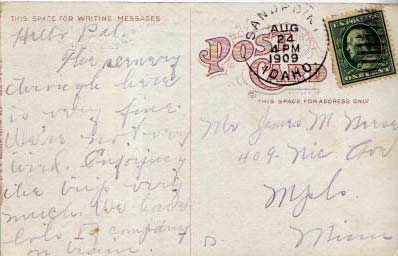 THIS SPACE FOR WRITING MESSAGES
Hello Pal.
The scenery
through here
is very fine.
We're not very
tired. Enjoying
the trip very
much. We have
lots of company
on train.
POST CARD
SANDPOINT
AUG
24
4 PM
1909
IDAHO.
U.S. POSTAGE
ONE CENT
THIS SPACE FOR ADDRESS ONLY
Mr James M.
409 - Nic Ave
Mpls
Minn